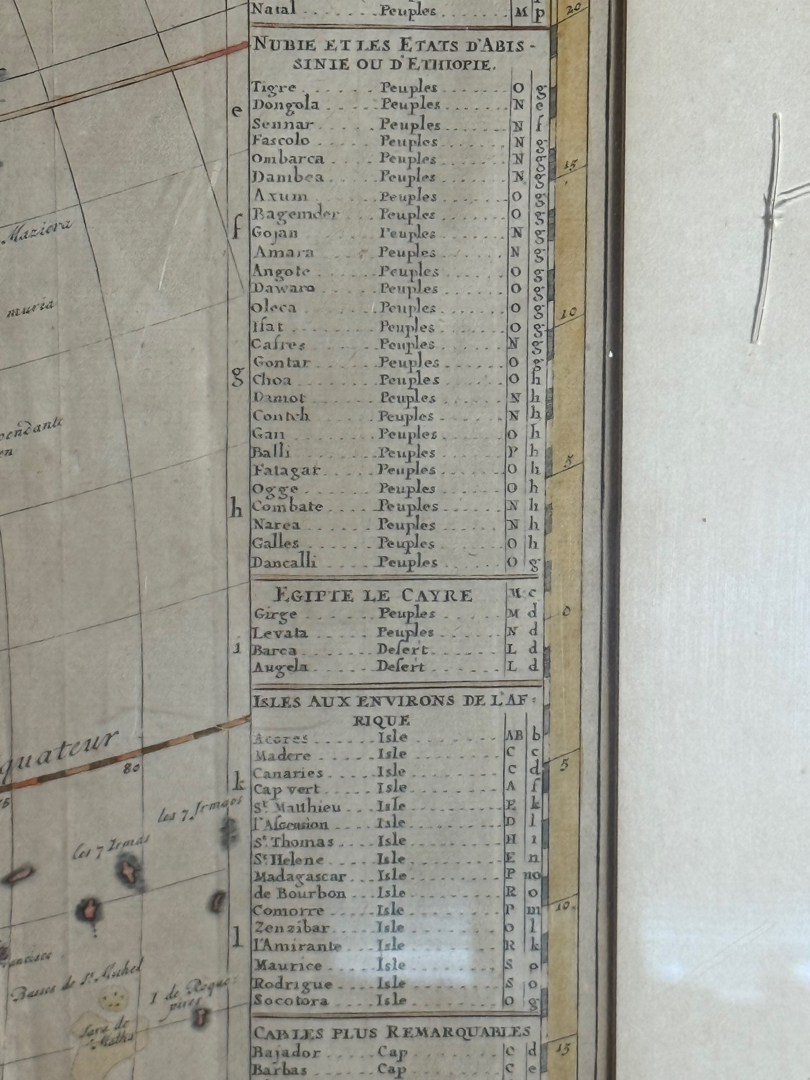 Natal Peuples M p
NUBIE ET LES ETATS D'ABIS-
SINIE OU D'ETHIOPIE.
Tigre Peuples O g
Dongola Peuples N e
Sennar Peuples N f
Fascolo Peuples N g
Ombarca Peuples N g
Dambea Peuples N g
Axum Peuples O g
Bagemder Peuples O g
Gojan Peuples N g
Amara Peuples N g
Angote Peuples O g
Dawaro Peuples O g
Oleca Peuples O g
Ifat Peuples O g
Cafres Peuples N g
Gontar Peuples O g
Choa Peuples O h
Damot Peuples N h
Contch Peuples N h
Gan Peuples O h
Balli Peuples P h
Fatagar Peuples O h
Ogge Peuples O h
Combate Peuples N h
Narea Peuples N h
Galles Peuples O h
Dancalli Peuples O g
EGIPTE LE CAYRE M c
Girge Peuples M d
Levata Peuples N d
Barca Desert L d
Augela Desert L d
ISLES AUX ENVIRONS DE L'AF=
RIQUE
Acores Isle AB b
Madere Isle C c
Canaries Isle C d
Cap vert Isle A f
St. Matthieu Isle E k
l'Ascension Isle D l
St. Thomas Isle H i
St. Helene Isle E n
Madagascar Isle P no
de Bourbon Isle R o
Comorre Isle P m
Zenzibar Isle O l
l'Amirante Isle R k
Maurice Isle S o
Rodrigue Isle S o
Socotora Isle O g
CABLES PLUS REMARQUABLES
Bajador Cap C d
Barbas Cap C e
e
f
g
h
i
k
l
20
15
10
5
0
5
10
15
Maziera
muria
quateur
80
les 7 Irmaos
les 7 Irmas
Basses de St. Michel